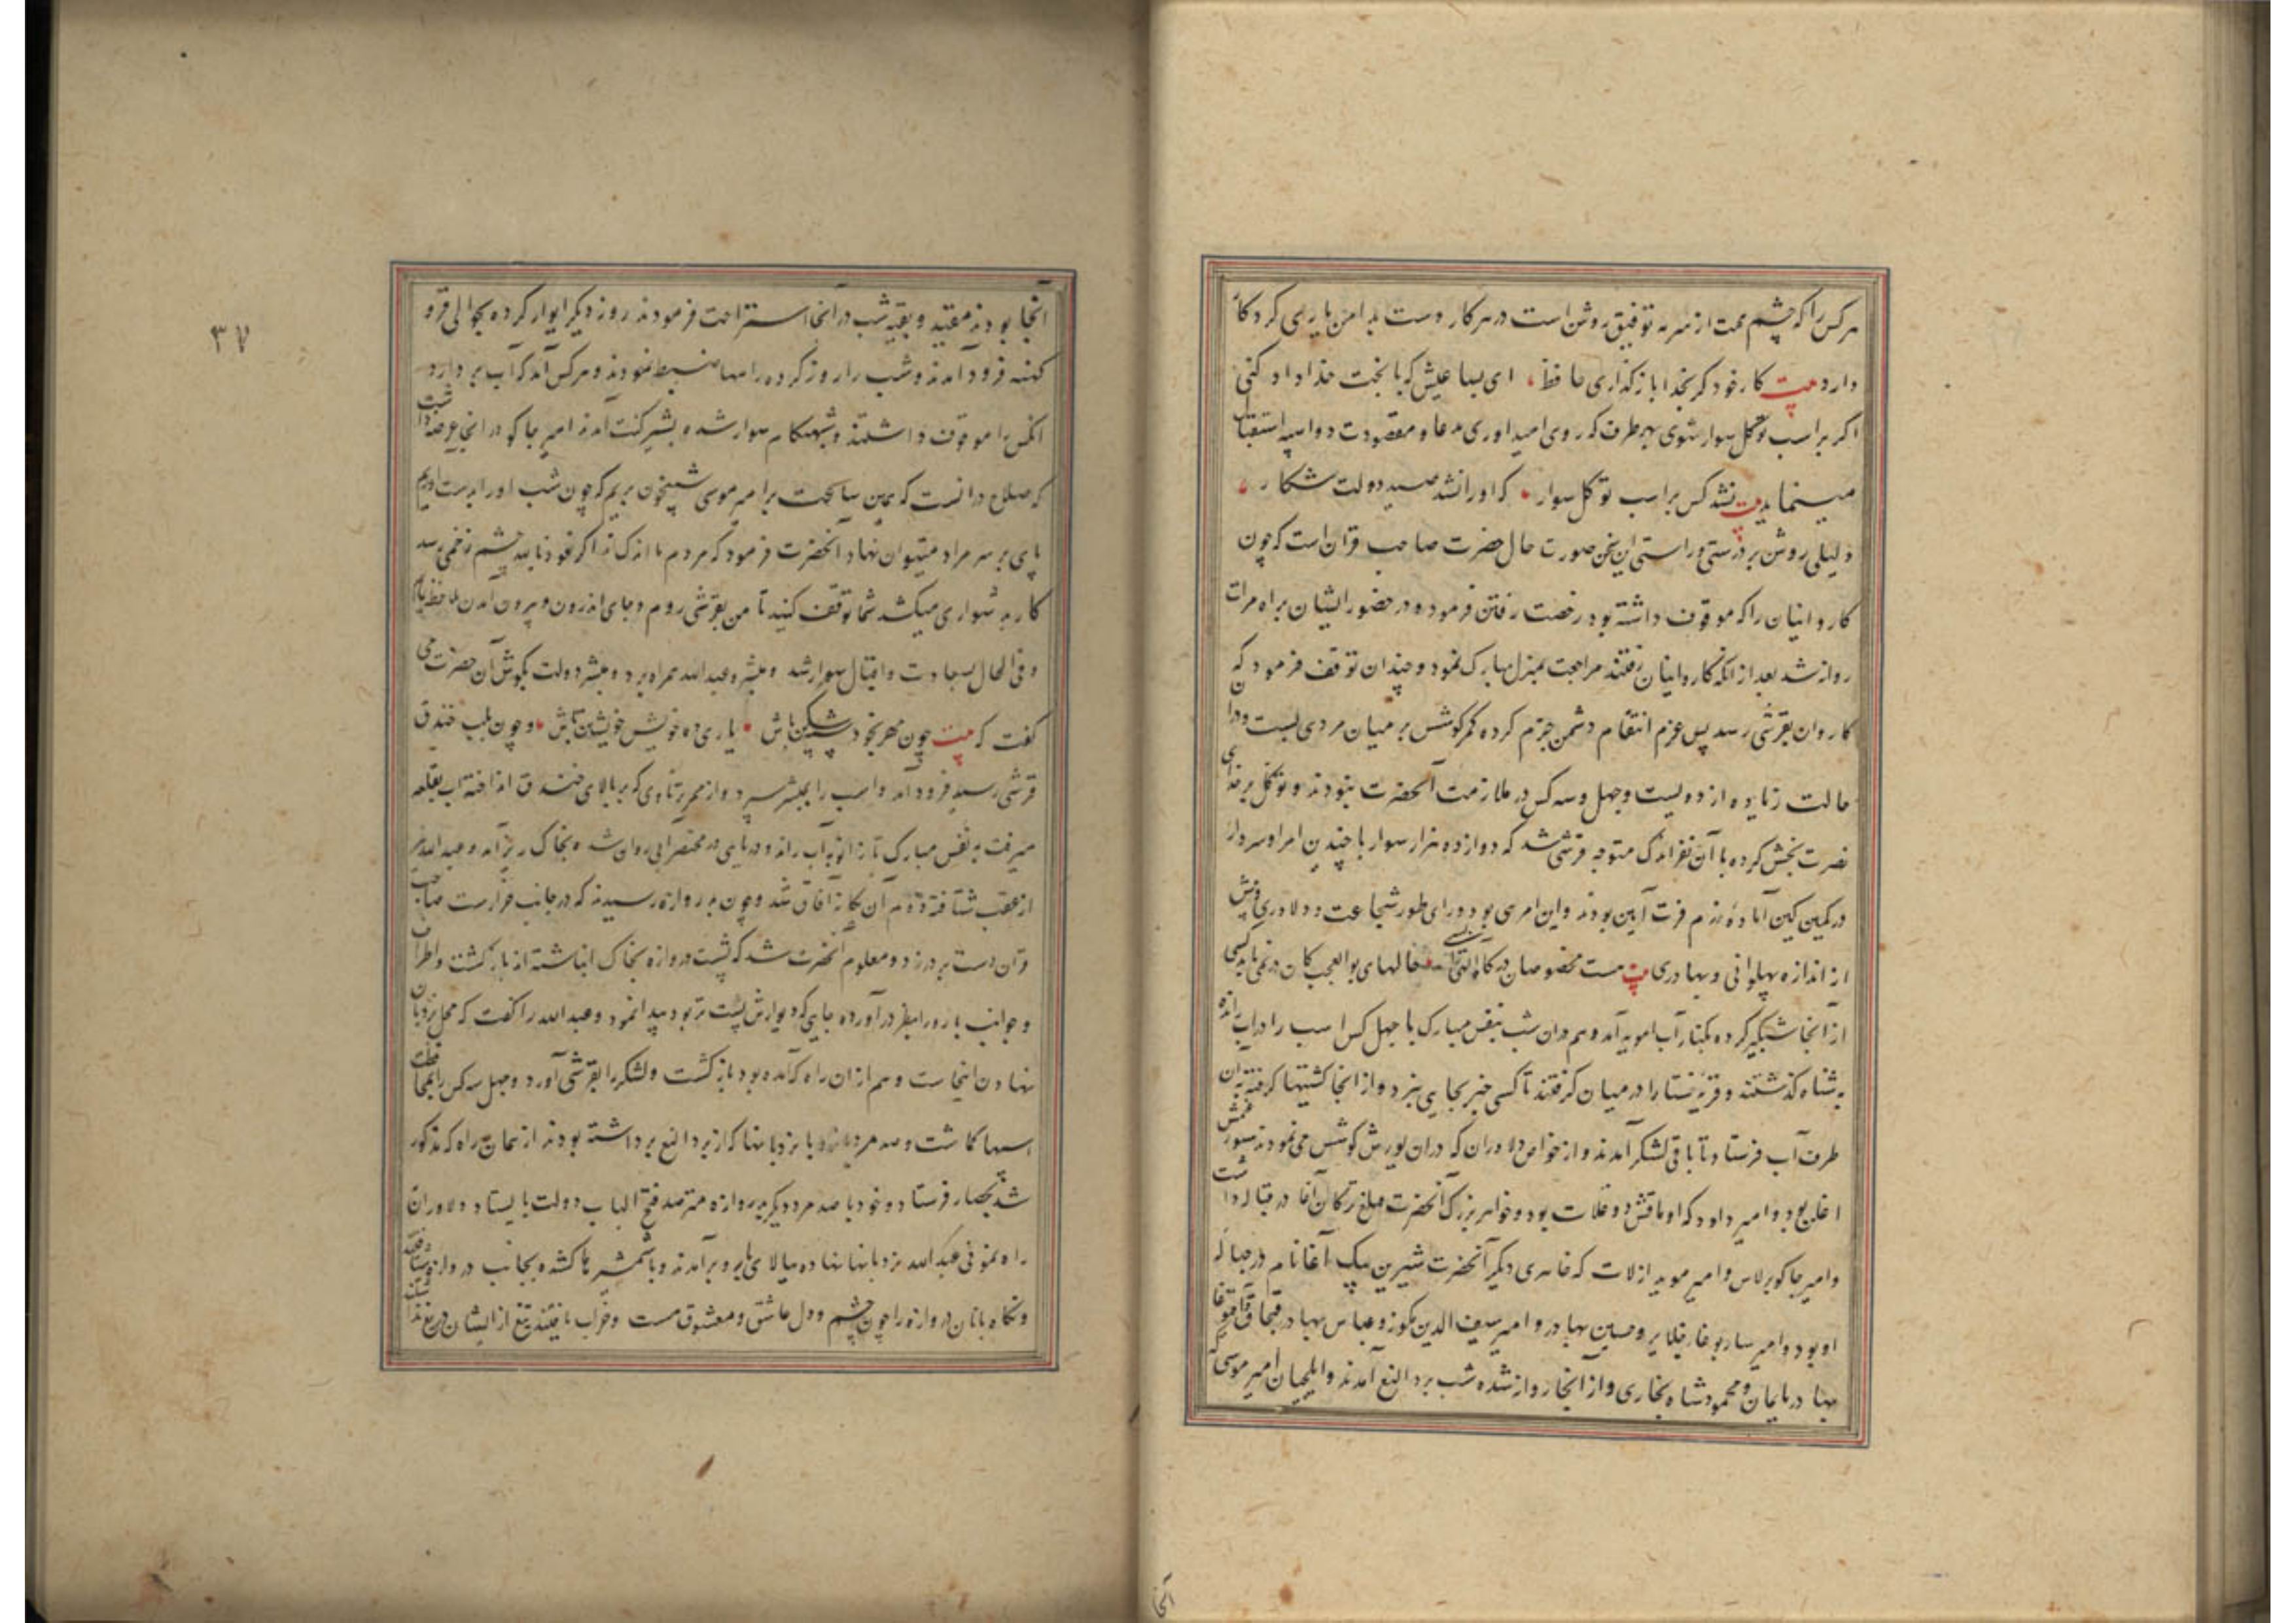 هر کس را که چشم همت از سرمه توفیق روشن است در هر کار دست بدامن یاری کردکار
دارد بیت کار خود کر بخدا بازکذاری حافظ ای بسا عیش که با بخت خداداد کنی
اکر بر اسب توکل سوار شوی بهر طرف که روی امید اوری مدعا و مقصودت دو اسپه استقبال
مینماید بیت نشد کس بر اسب توکل سوار که اورا نشد صید دولت شکار
دلیلی روشن بر درستی و راستی این سخن صورت حال حضرت صاحب قران است که چون
کاروانیان را که موقوف داشته بود رخصت رفتن فرموده در حضور ایشان براه هرات
روانه شد بعد از انکه کاروانیان رفتند مراجعت بمنزل مبارک نمود و چندان توقف فرمود که
کاروان بقرشی رسد پس عزم انتقام دشمن جزم کرده کمر کوشش بر میان مردی بست و دران
حالت زیاده از دویست و چهل و سه کس در ملازمت آنحضرت نبودند و توکل بر خدای
نصرت بخش کرده با آن نفر اندک متوجه قرشی شد که دوازده هزار سوار با چندین امرا و سردار
در کمین کین آماده رزم بودند و این امری بود ورای طور شجاعت و دلاوری و بیش
از اندازه پهلوانی و بهادری بیت هست مخصوصان درکاه الهی حالهای بوالعجب کان در نمی یابد کسی
از آنجا شبکیر کرده بکنار آب امویه آمد و هم دران شب بنفس مبارک با چهل کس اسب را در آب رانده
بشناه کذشتند و قریه را در میان کرفتند تا کسی خبر بجایی نبرد و از انجا کشتیها کرفته بان
طرف آب فرستاد تا باقی لشکر آمدند و از خواص دلاوران که دران یورش کوشش می نمودند سیورغتمش
اغلن بود و امیر داود که اوماقش دوغلات بود و خواهر بزرک آنحضرت قتلغ ترکان آغا در حباله داشت
و امیر جاکو برلاس و امیر موید ارلات که خواهری دیکر آنحضرت شیرین بیک آغا نام در حباله
او بود و امیر ساربوغا جلایر و حسین بهادر و امیر سیف الدین نکوز و عباس بهادر قبچاق و اقبوغا
بهادر نایمان و محمود شاه بخاری و از آنجا روان شده شب بردالیغ آمدند و ایلچیان امیر موسی که
آنجا
۳۷
آنجا بودند مقید و بقیه شب در آنجا استراحت فرمودند روز دیکر ایوار کرده بحوالی قرو
کهنه فرود آمدند و شب را روز کرده راهها ضبط نمودند و هر کس آمد که آب بردارد
انکس را موقوف داشتند و شبهنکام سوار شده بشیرکنت آمدند امیر جاکو در انجا عرضه داشت
که صلاح دانست که همین ساعت بر امیر موسی شبیخون بریم که چون شب اورا بدست اریم
پای بر سر مراد میتوان نهاد آنحضرت فرمود که مردم ما اندک اند اکر نعوذ بالله چشم زخمی رسد
کار بدشواری میکشد شما توقف کنید تا من بقرشی روم و جای اندرون و بیرون آمدن ملاحظه نمایم
و فی الحال بسعادت و اقبال سوار شد و مبشر و عبدالله همراه برد و مبشر دولت بکوش آن حضرت می
کفت که بیت چون مهر بخود باش یاری ده خویش خویشتن باش و چون بلب خندق
قرشی رسید فرود آمد و اسب را بمبشر سپرد و از ممر تناوی که بر بالای خندق انداخته آب بقلعه
میرفت به نفس مبارک تا زانو به آب راند و دریایی در مختصر ابی روان شد و بخاک ریز آمد و عبدالله نیز
از عقب شتافته همراه آن یکانه آفاق شد و چون بدروازه رسیدند که در جانب خزار است صاحب
قران دست بر در زد و معلوم انحضرت شد که پشت دروازه بخاک انباشته اند بازکشت و اطراف
و جوانب باره را بنظر درآورده جایی که دیوارش پست تر بود پیدا نمود و عبدالله را کفت که محل نردبان
نهادن اینجاست و هم از ان راه که آمده بود بازکشت و لشکر را بقرشی آورد و چهل سه کس را بمحافظت
اسبها کماشت و صد مرد با نردبانها که از بردالیغ برداشته بودند از همان راه که مذکور
شد بحصار فرستاد و خود با صد مرد دیکر بدروازه مترصد فتح الباب دولت بایستاد دلاوران
راه نمونی عبدالله نردبانها نهاده ببالای بارو برآمدند و با شمشیرها کشیده بجانب دروازه شتافتند
و نکاه بانان دروازه را چون چشم و دل عاشق و معشوق مست و خراب یافتند تیغ از ایشان دریغ نداشتند